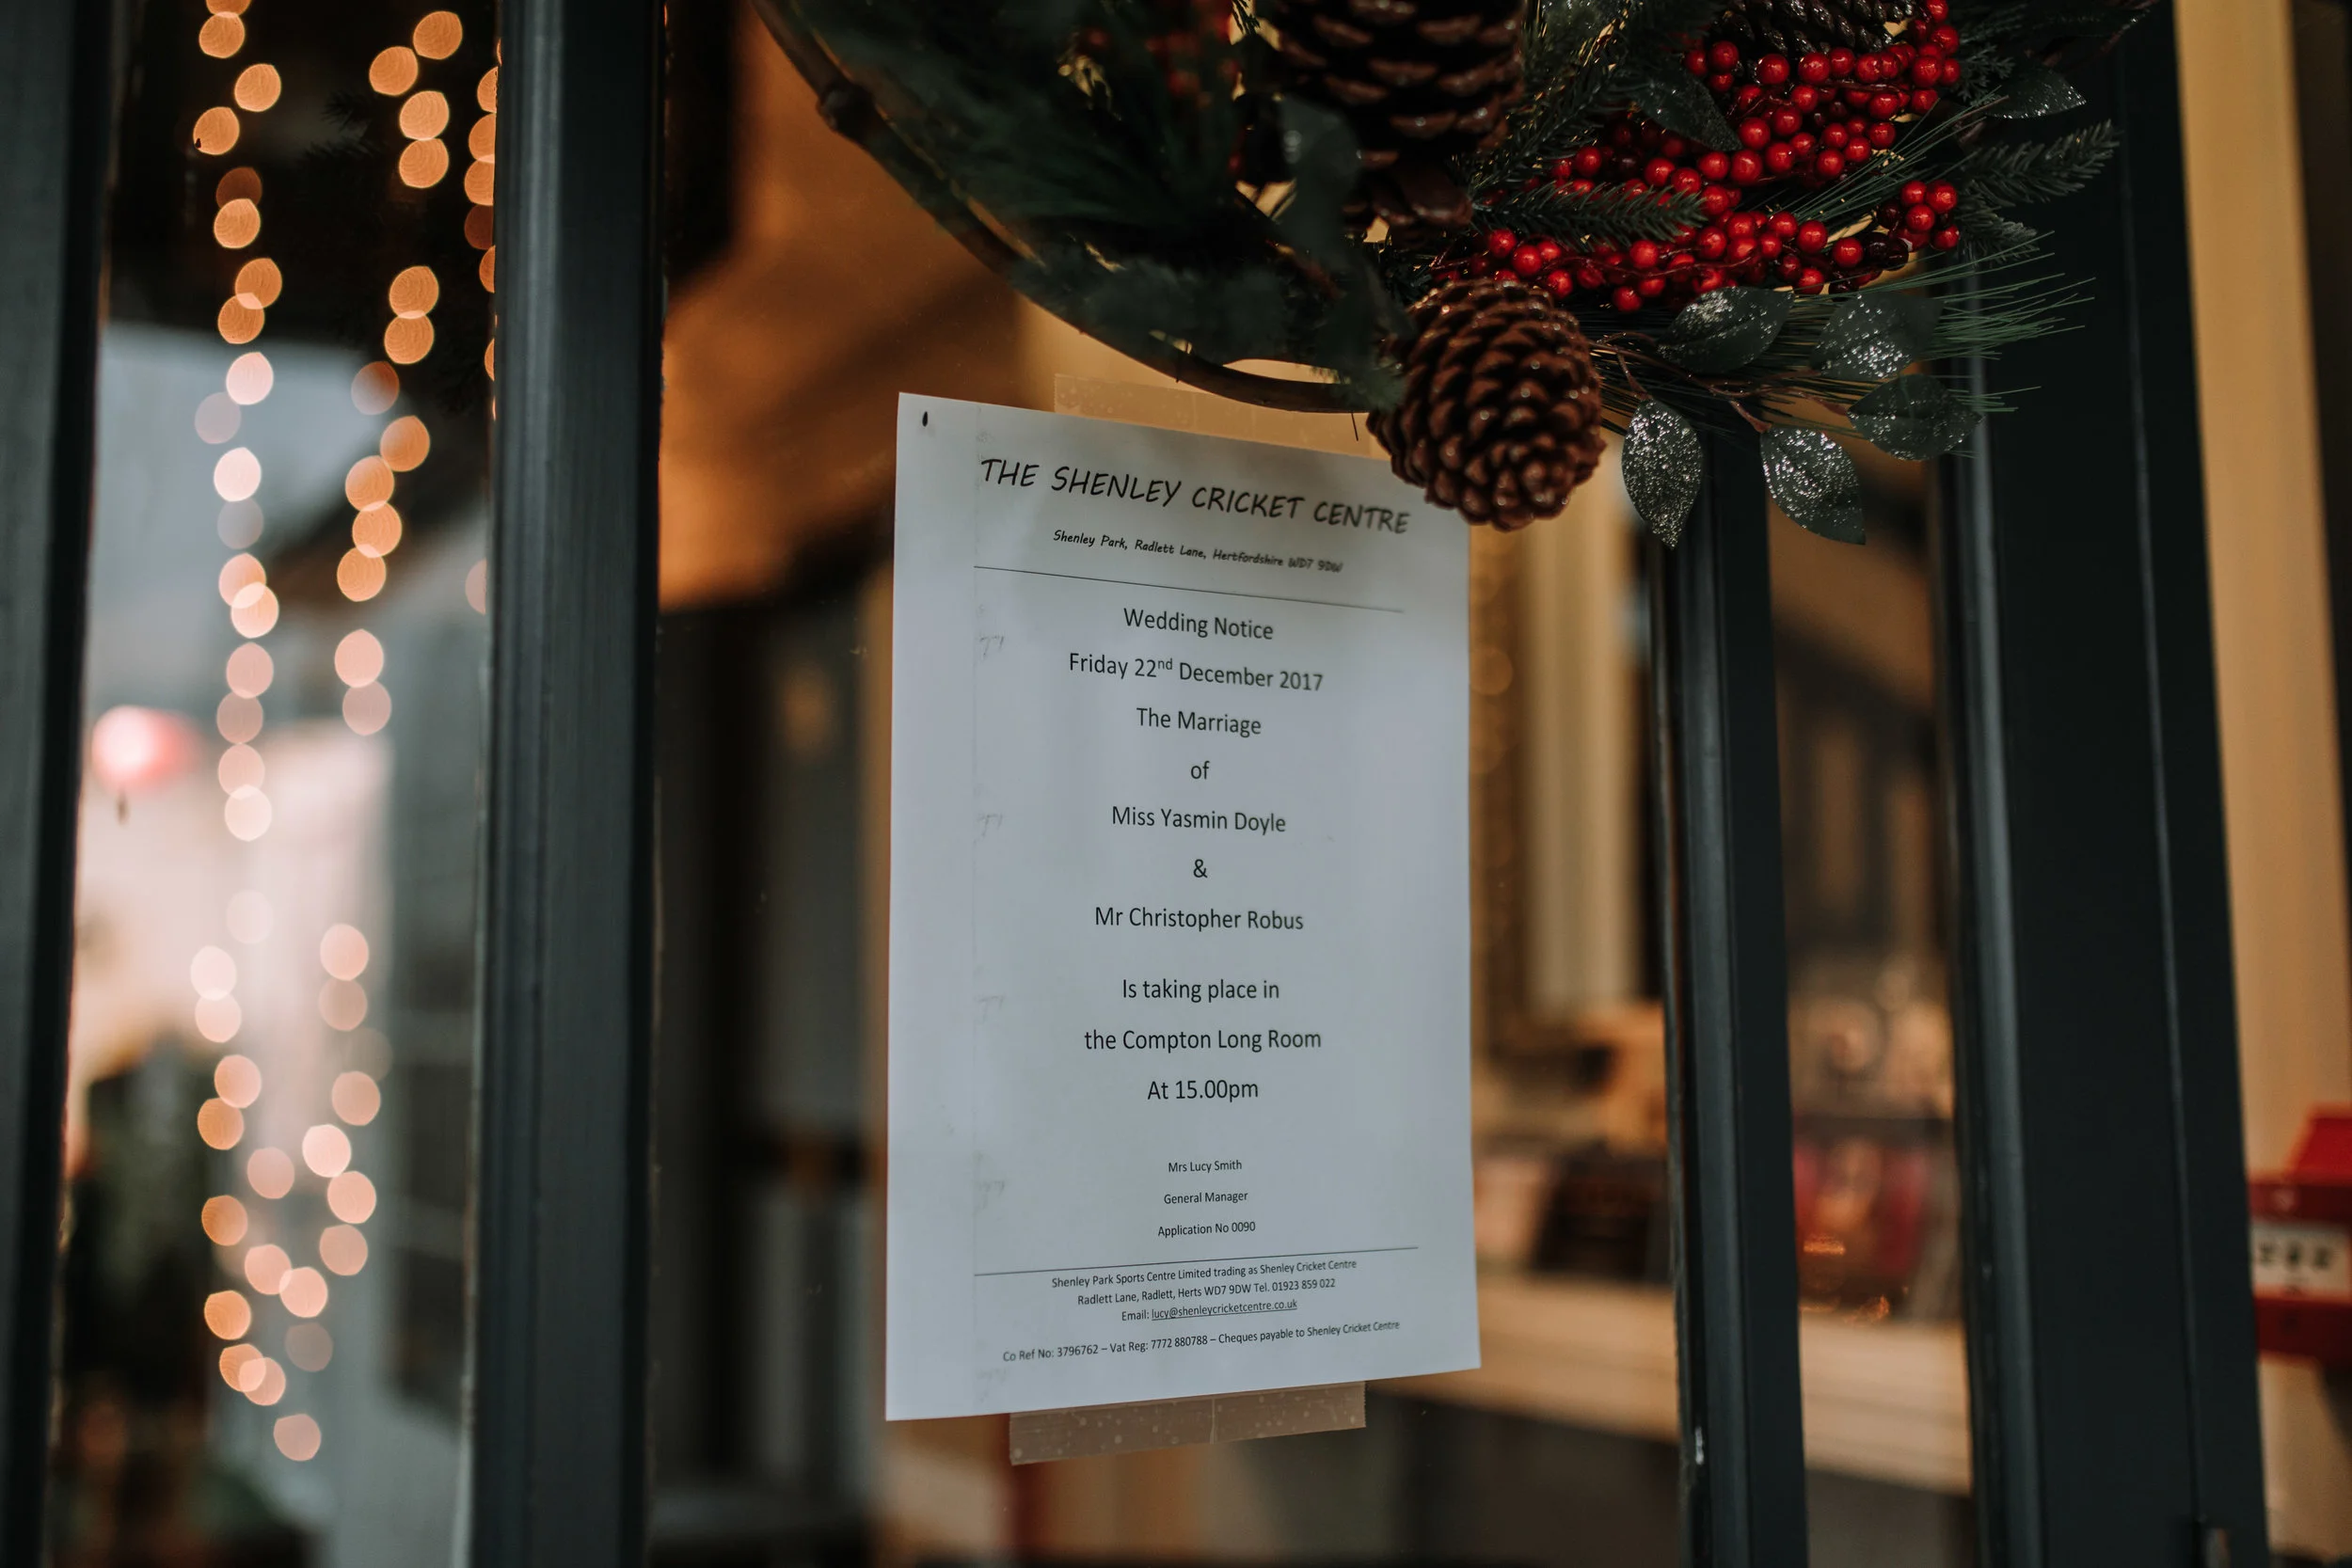 THE SHENLEY CRICKET CENTRE
Shenley Park, Radlett Lane, Hertfordshire WD7 9DW
Wedding Notice
Friday 22nd December 2017
The Marriage
of
Miss Yasmin Doyle
&
Mr Christopher Robus
Is taking place in
the Compton Long Room
At 15.00pm
Mrs Lucy Smith
General Manager
Application No 0090
Shenley Park Sports Centre Limited trading as Shenley Cricket Centre
Radlett Lane, Radlett, Herts WD7 9DW Tel. 01923 859 022
Email: lucy@shenleycricketcentre.co.uk
Co Ref No: 3796762 – Vat Reg: 7772 880788 – Cheques payable to Shenley Cricket Centre